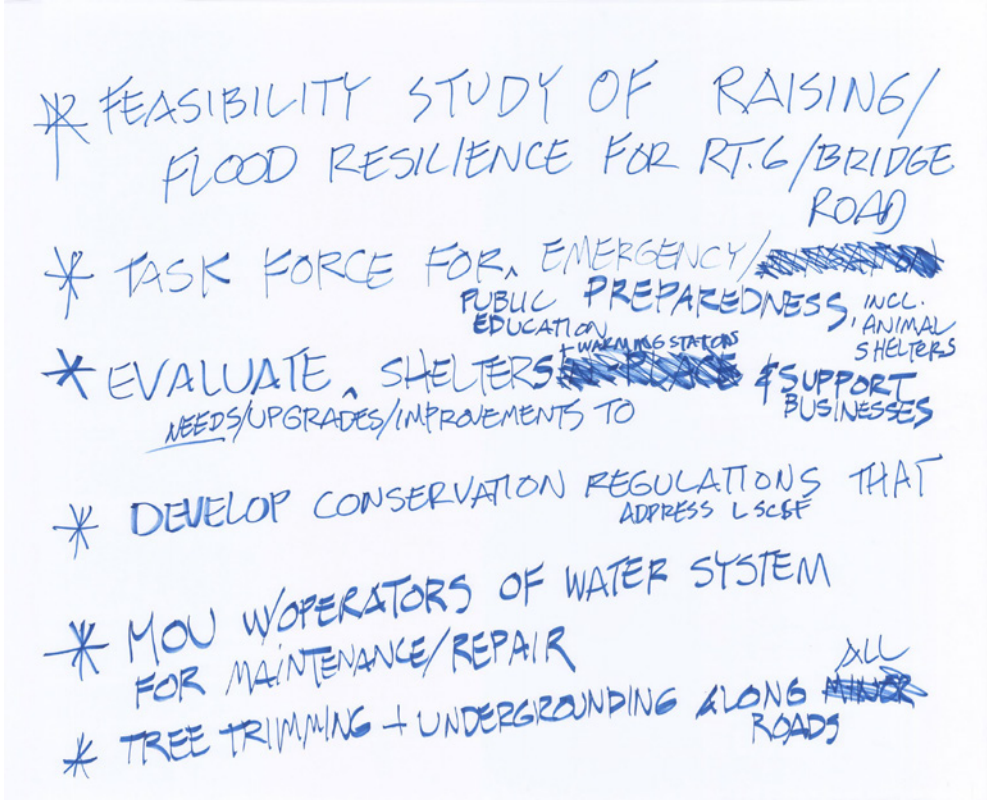 * FEASIBILITY STUDY OF RAISING/
FLOOD RESILIENCE FOR RT.6/BRIDGE
ROAD
* TASK FORCE FOR ^ EMERGENCY/
PUBLIC EDUCATION
PREPAREDNESS, INCL. ANIMAL SHELTERS
* EVALUATE ^ SHELTERS
+ WARMING STATIONS
& SUPPORT BUSINESSES
NEEDS/UPGRADES/IMPROVEMENTS TO
* DEVELOP CONSERVATION REGULATIONS THAT
ADDRESS LSCSF
* MOU W/OPERATORS OF WATER SYSTEM
FOR MAINTENANCE/REPAIR
* TREE TRIMMING + UNDERGROUNDING ALONG ALL
ROADS